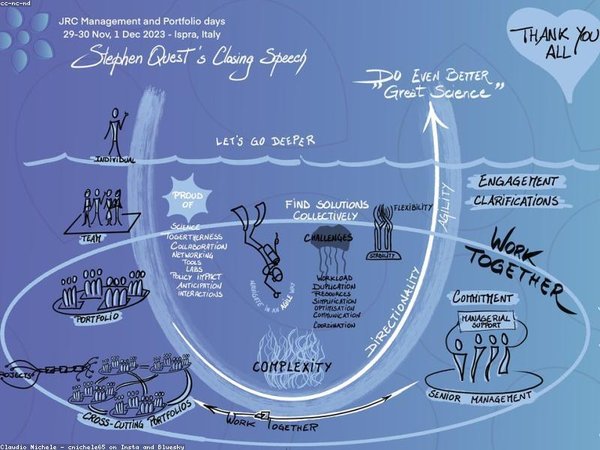 cc-nc-nd
JRC Management and Portfolio days
29-30 Nov, 1 Dec 2023 - Ispra, Italy
Stephen Quest's Closing Speech
THANK YOU
ALL
DO EVEN BETTER
"Great Science"
LET'S GO DEEPER
INDIVIDUAL
TEAM
PORTFOLIO
PROJECTS
CROSS-CUTTING PORTFOLIOS
PROUD
OF
SCIENCE
TOGERTHERNESS
COLLABORATION
NETWORKING
TOOLS
LABS
POLICY IMPACT
ANTICIPATION
INTERACTIONS
NAVIGATE IN AN AGILE WAY
FIND SOLUTIONS
COLLECTIVELY
CHALLENGES
WORKLOAD
DUPLICATION
RESOURCES
SIMPLIFICATION
OPTIMISATION
COMMUNICATION
COORDINATION
FLEXIBILITY
STABILITY
COMPLEXITY
AGILITY
DIRECTIONALITY
WORK TOGETHER
ENGAGEMENT
CLARIFICATIONS
WORK
TOGETHER
COMMITMENT
MANAGERIAL
SUPPORT
SENIOR MANAGEMENT
Claudio Nichele - cnichele65 on Insta and Bluesky